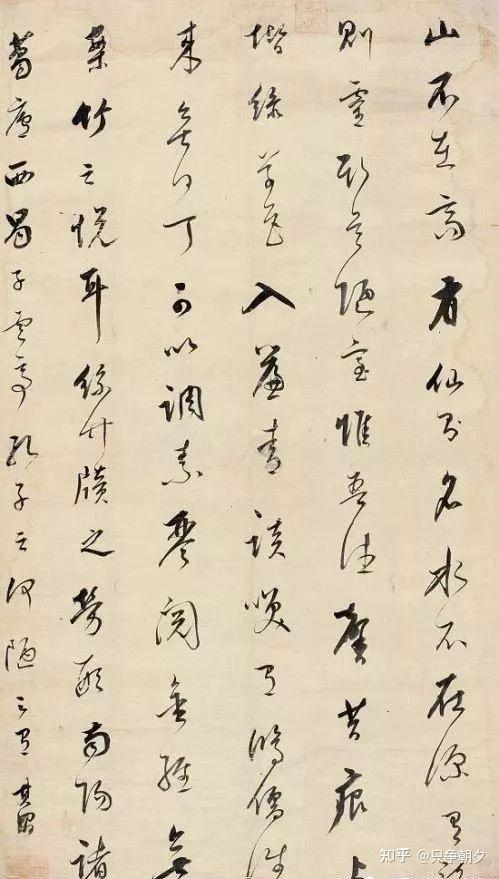 山不在高有仙則名水不在深有龍
則靈斯是陋室惟吾德馨苔痕上
堦綠草色入簾青談咲有鴻儒往
來無白丁可以調素琴閱金經無
竹之悦耳絲竹牘之勞形南陽諸
葛廬西蜀子雲亭孔子云何陋之有 其昌
知乎 @只争朝夕